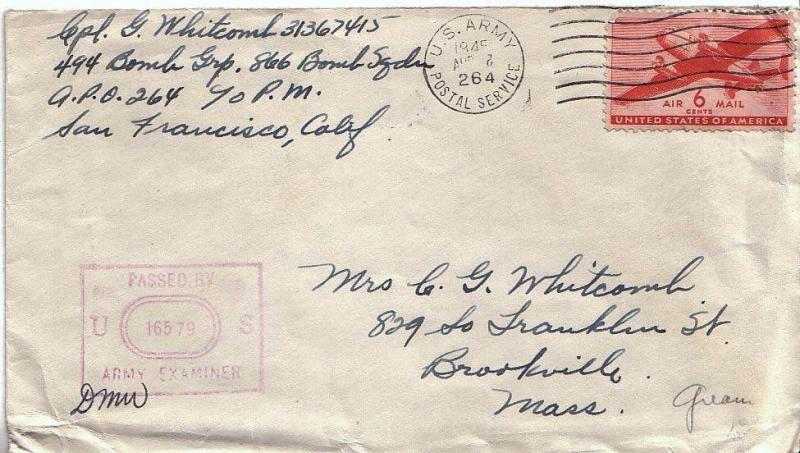 Cpl. G. Whitcomb 31367415
494 Bomb Grp. 866 Bomb Sqdn
A.P.O. 264 % P.M.
San Francisco, Calif
U.S. ARMY
1945
264
POSTAL SERVICE
AIR 6 MAIL
CENTS
UNITED STATES OF AMERICA
PASSED BY
U 16579 S
ARMY EXAMINER
DMW
Mrs C. G. Whitcomb
829 So Franklin St.
Brookville
Mass.